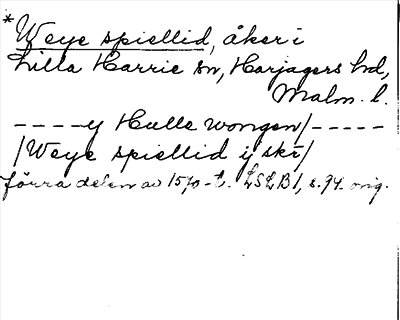 *Weye spiellid, åker i
Lilla Harrie sn, Harjagers hd,
Malm. l.
----y Hulle wongen/-----
/Weye spiellid ij skr/
förra delen av 1570-t. LSLB1, s.94. orig.